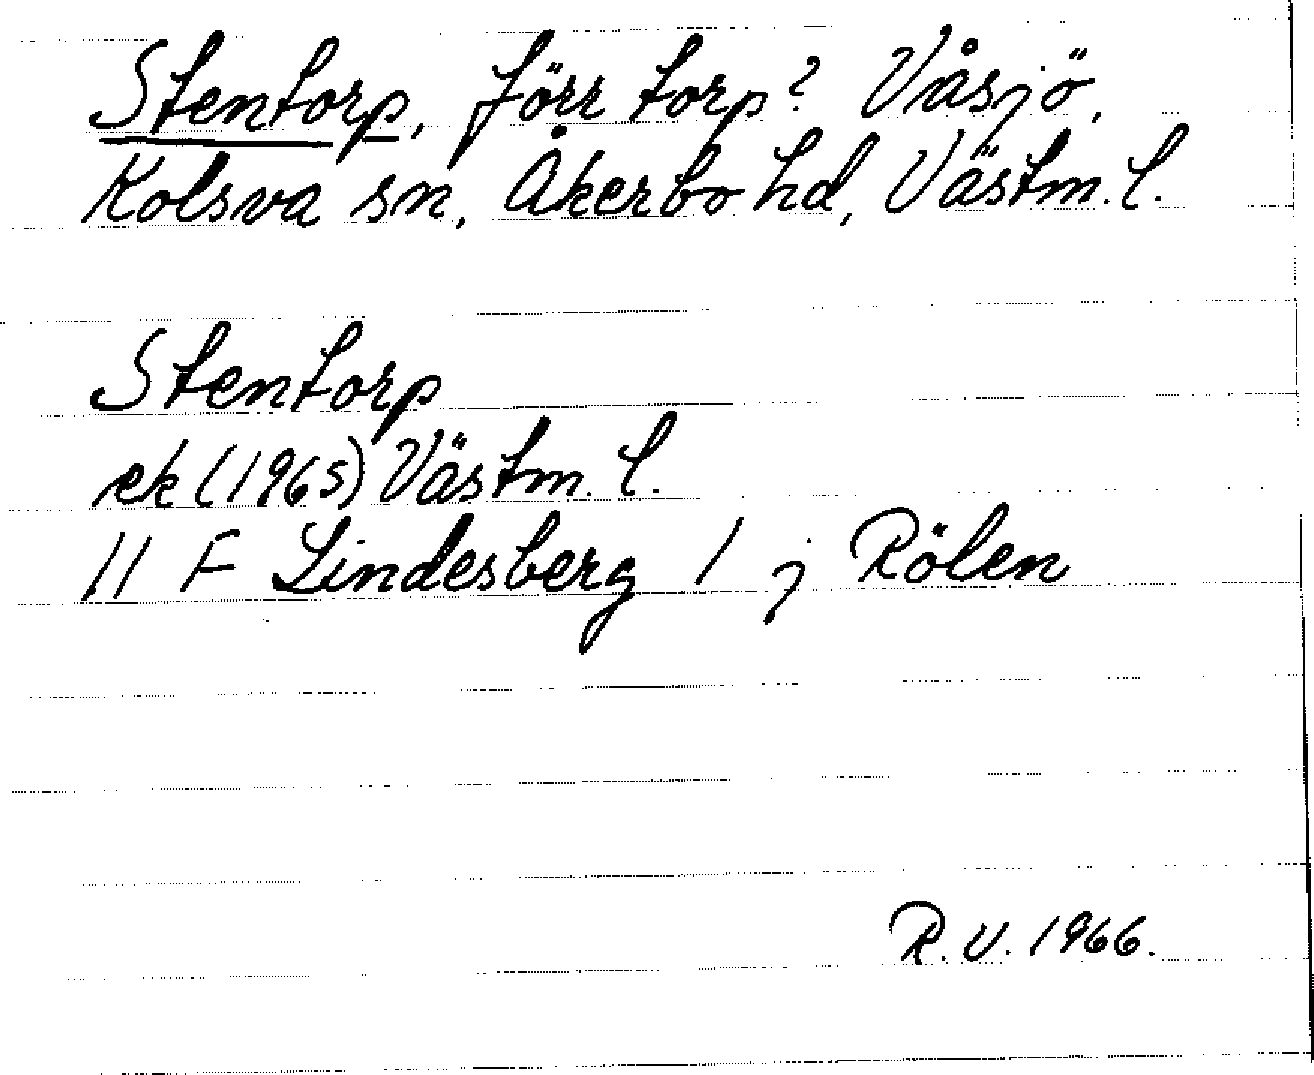 Stentorp, förr torp? Våsjö,
Kolsva sn, Åkerbo hd, Västm. l.
Stentorp
ek (1965) Västm. l.
11 F Lindesberg 1 j Rölen
R.V. 1966.